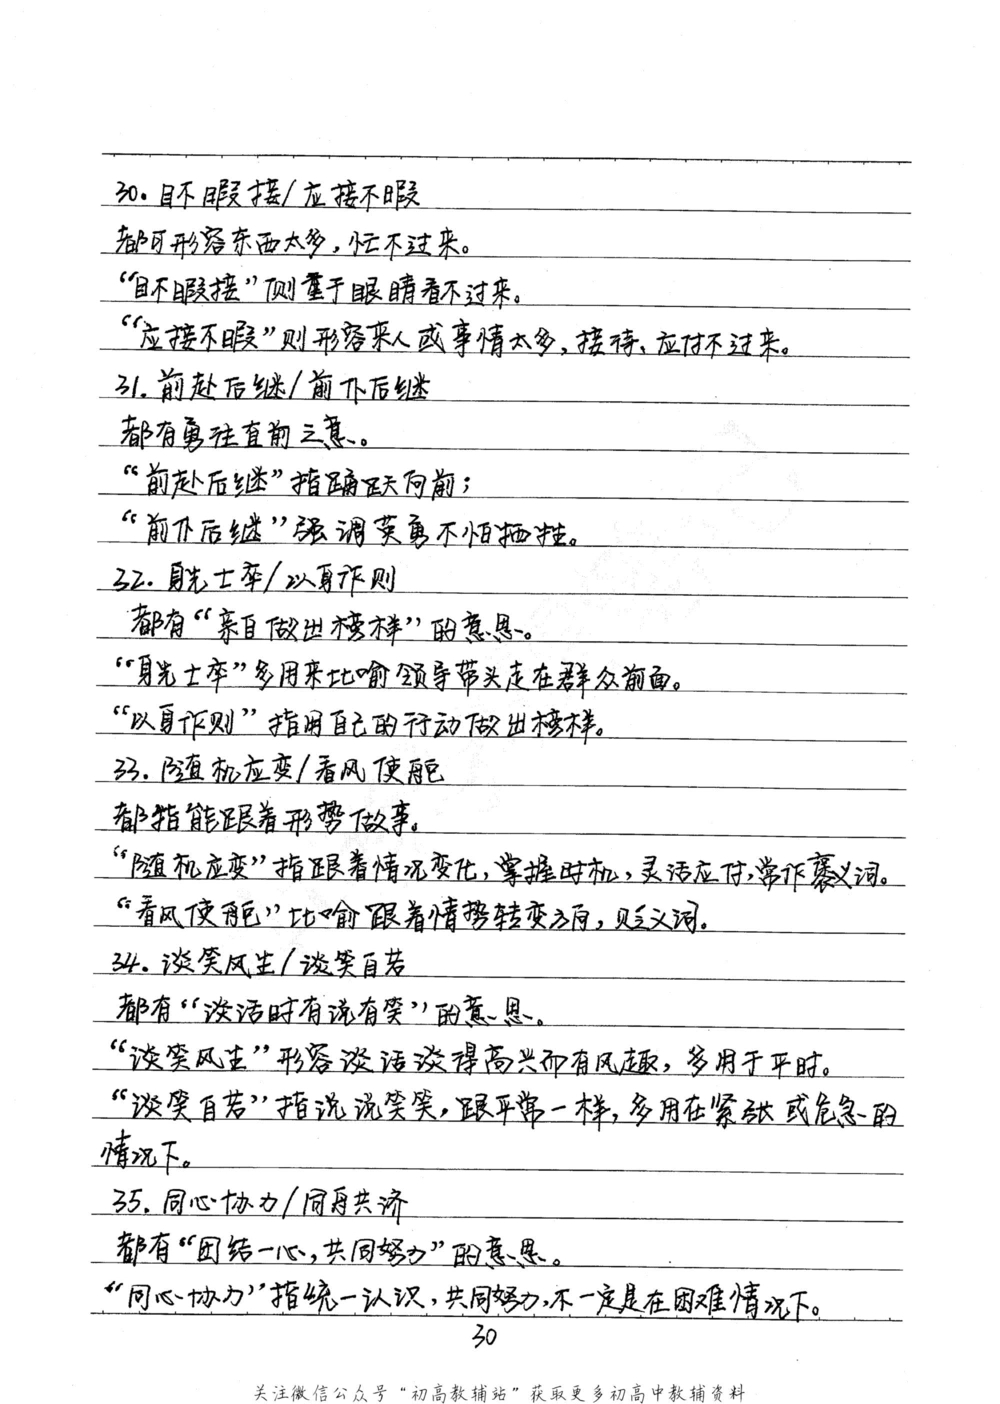 30. 目不暇接/应接不暇
都可形容东西太多，忙不过来。
“目不暇接”侧重于眼睛看不过来。
“应接不暇”则形容来人或事情太多，接待、应付不过来。
31. 前赴后继/前仆后继
都有勇往直前之意。
“前赴后继”指踊跃向前；
“前仆后继”强调英勇不怕牺牲。
32. 身先士卒/以身作则
都有“亲自做出榜样”的意思。
“身先士卒”多用来比喻领导带头走在群众前面。
“以身作则”指用自己的行动做出榜样。
33. 随机应变/看风使舵
都指能跟着形势做事。
“随机应变”指跟着情况变化，掌握时机，灵活应付，常作褒义词。
“看风使舵”比喻跟着情势转变方向，贬义词。
34. 谈笑风生/谈笑自若
都有“谈话时有说有笑”的意思。
“谈笑风生”形容谈话谈得高兴而有风趣，多用于平时。
“谈笑自若”指说说笑笑，跟平常一样，多用在紧张或危急的
情况下。
35. 同心协力/同舟共济
都有“团结一心，共同努力”的意思。
“同心协力”指统一认识，共同努力，不一定是在困难情况下。
30
关注微信公众号“初高教辅站”获取更多初高中教辅资料